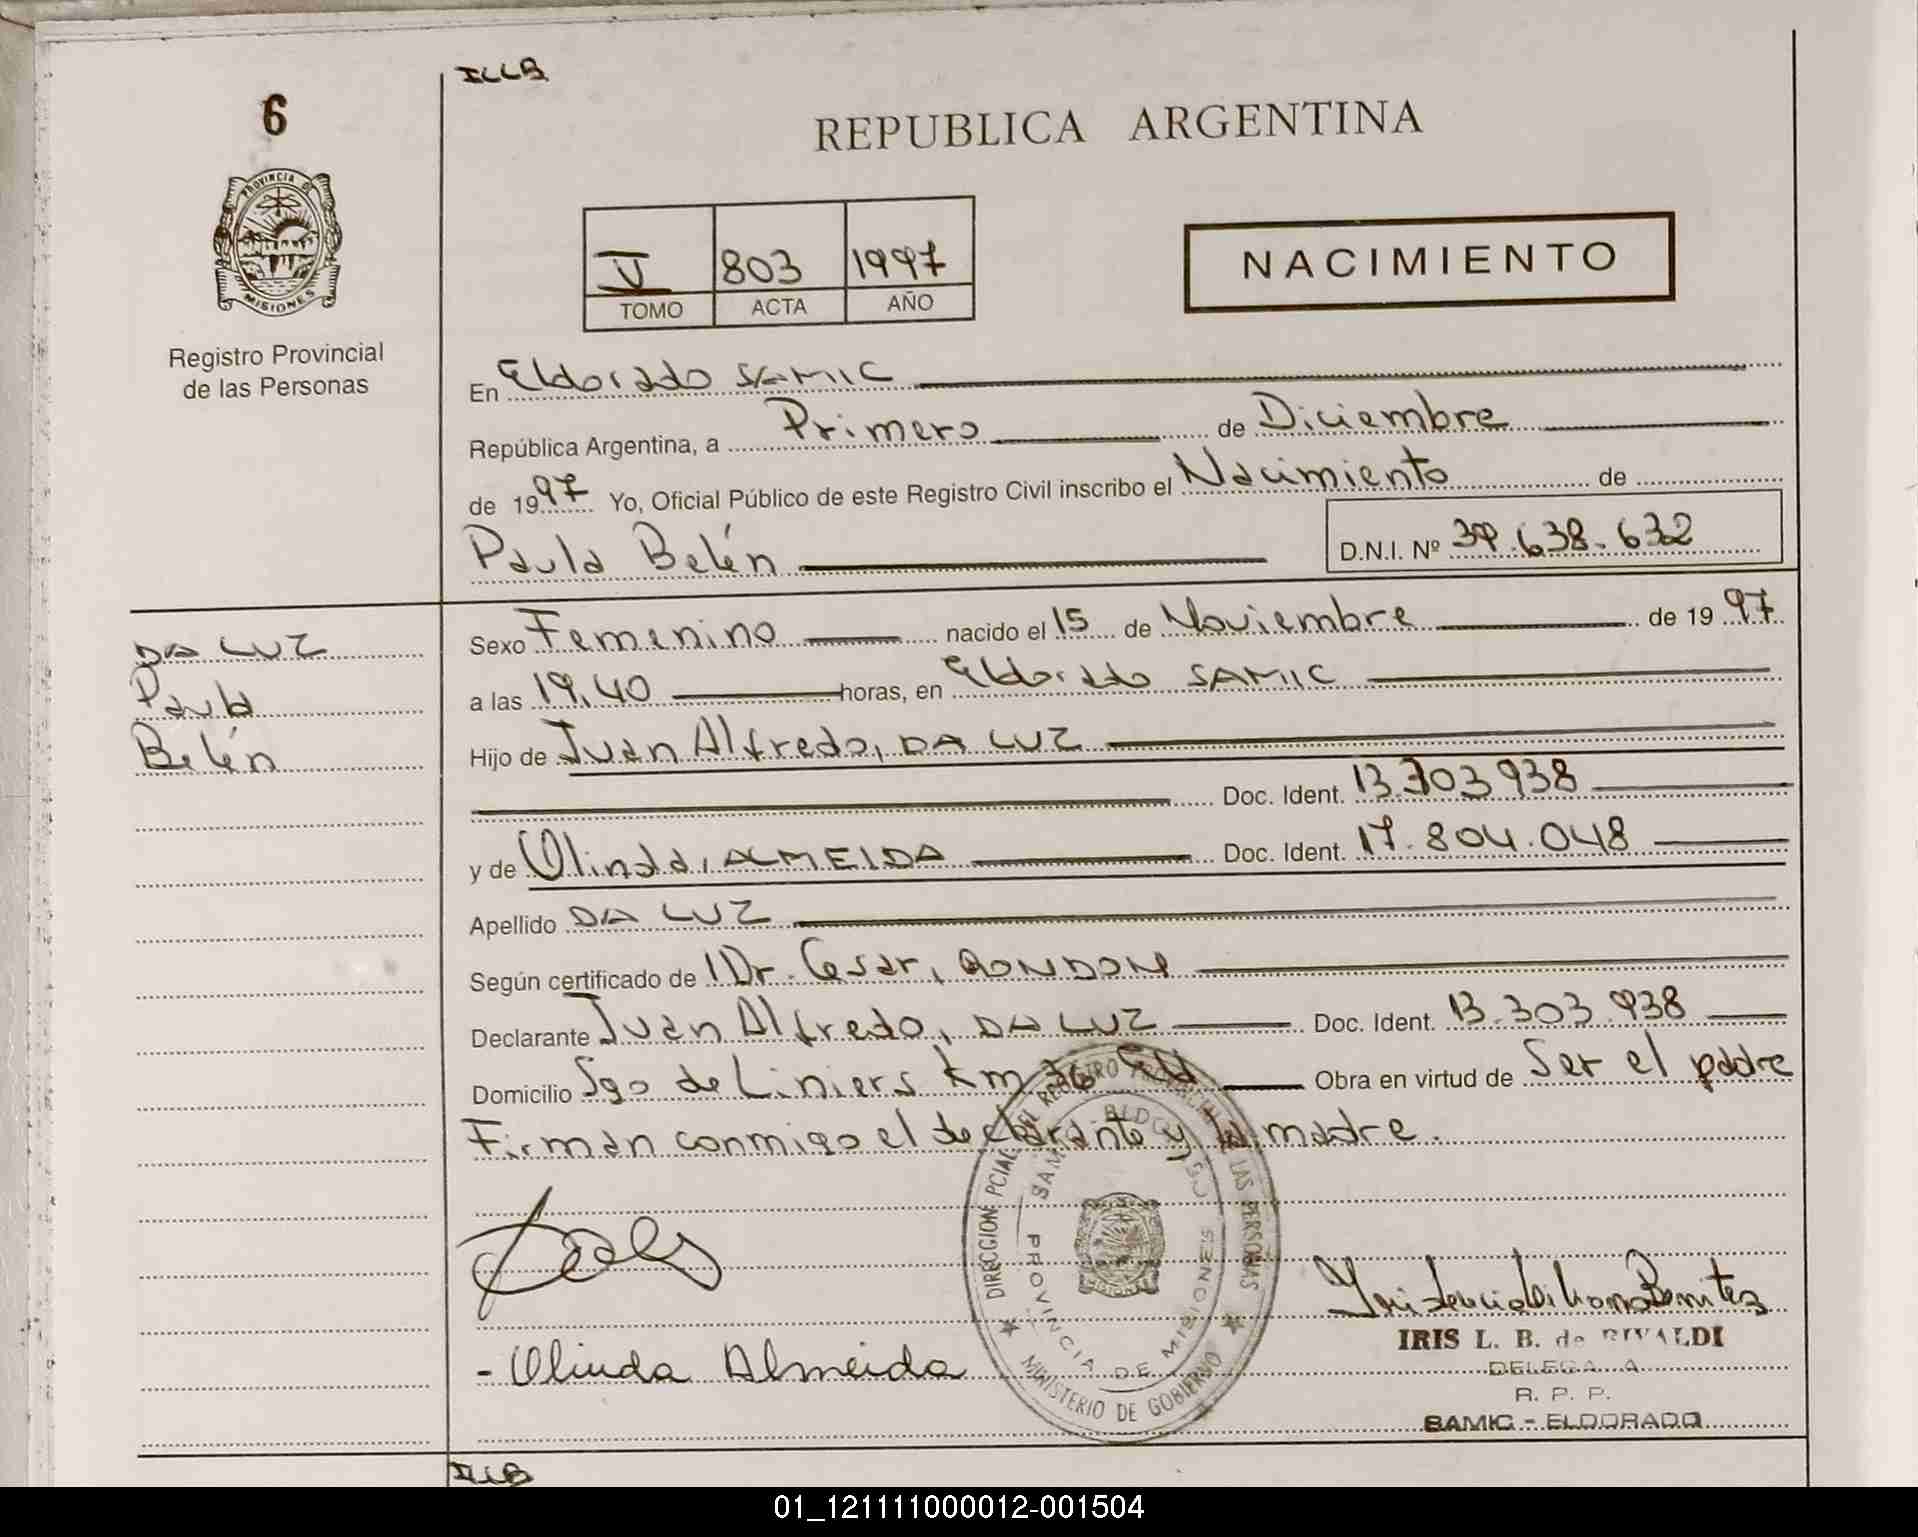 ILLB
6
REPUBLICA ARGENTINA
PROVINCIA DE
MISIONES
V 803 1997
TOMO ACTA AÑO
NACIMIENTO
Registro Provincial
de las Personas
En Eldorado SAMIC
República Argentina, a Primero de Diciembre
de 1997 Yo, Oficial Público de este Registro Civil inscribo el Nacimiento de
Paula Belén D.N.I. Nº .638.632
DA LUZ
Paula
Belén
Sexo Femenino nacido el 15 de Noviembre de 1997
a las 19,40 horas, en Eldorado SAMIC
Hijo de Juan Alfredo, DA LUZ
Doc. Ident. 13.303.938
y de Olinda, ALMEIDA Doc. Ident. 17.804.048
Apellido DA LUZ
Según certificado de Dr. Cesar, RONDON
Declarante Juan Alfredo, DA LUZ Doc. Ident. 13.303.938
Domicilio Sgo de Liniers Km Eld Obra en virtud de Ser el padre
Firman conmigo el declarante y la madre.
DIRECCION PCIAL DEL REGISTRO PROVINCIAL DE LAS PERSONAS
MINISTERIO DE GOBIERNO
SAMIC ELDORADO
PROVINCIA DE MISIONES
Iris Leucadia Liliana Benitez
IRIS L. B. de RIVALDI
DELEGADA
R. P. P.
SAMIC - ELDORADO
- Olinda Almeida
ILLB
01_121111000012-001504